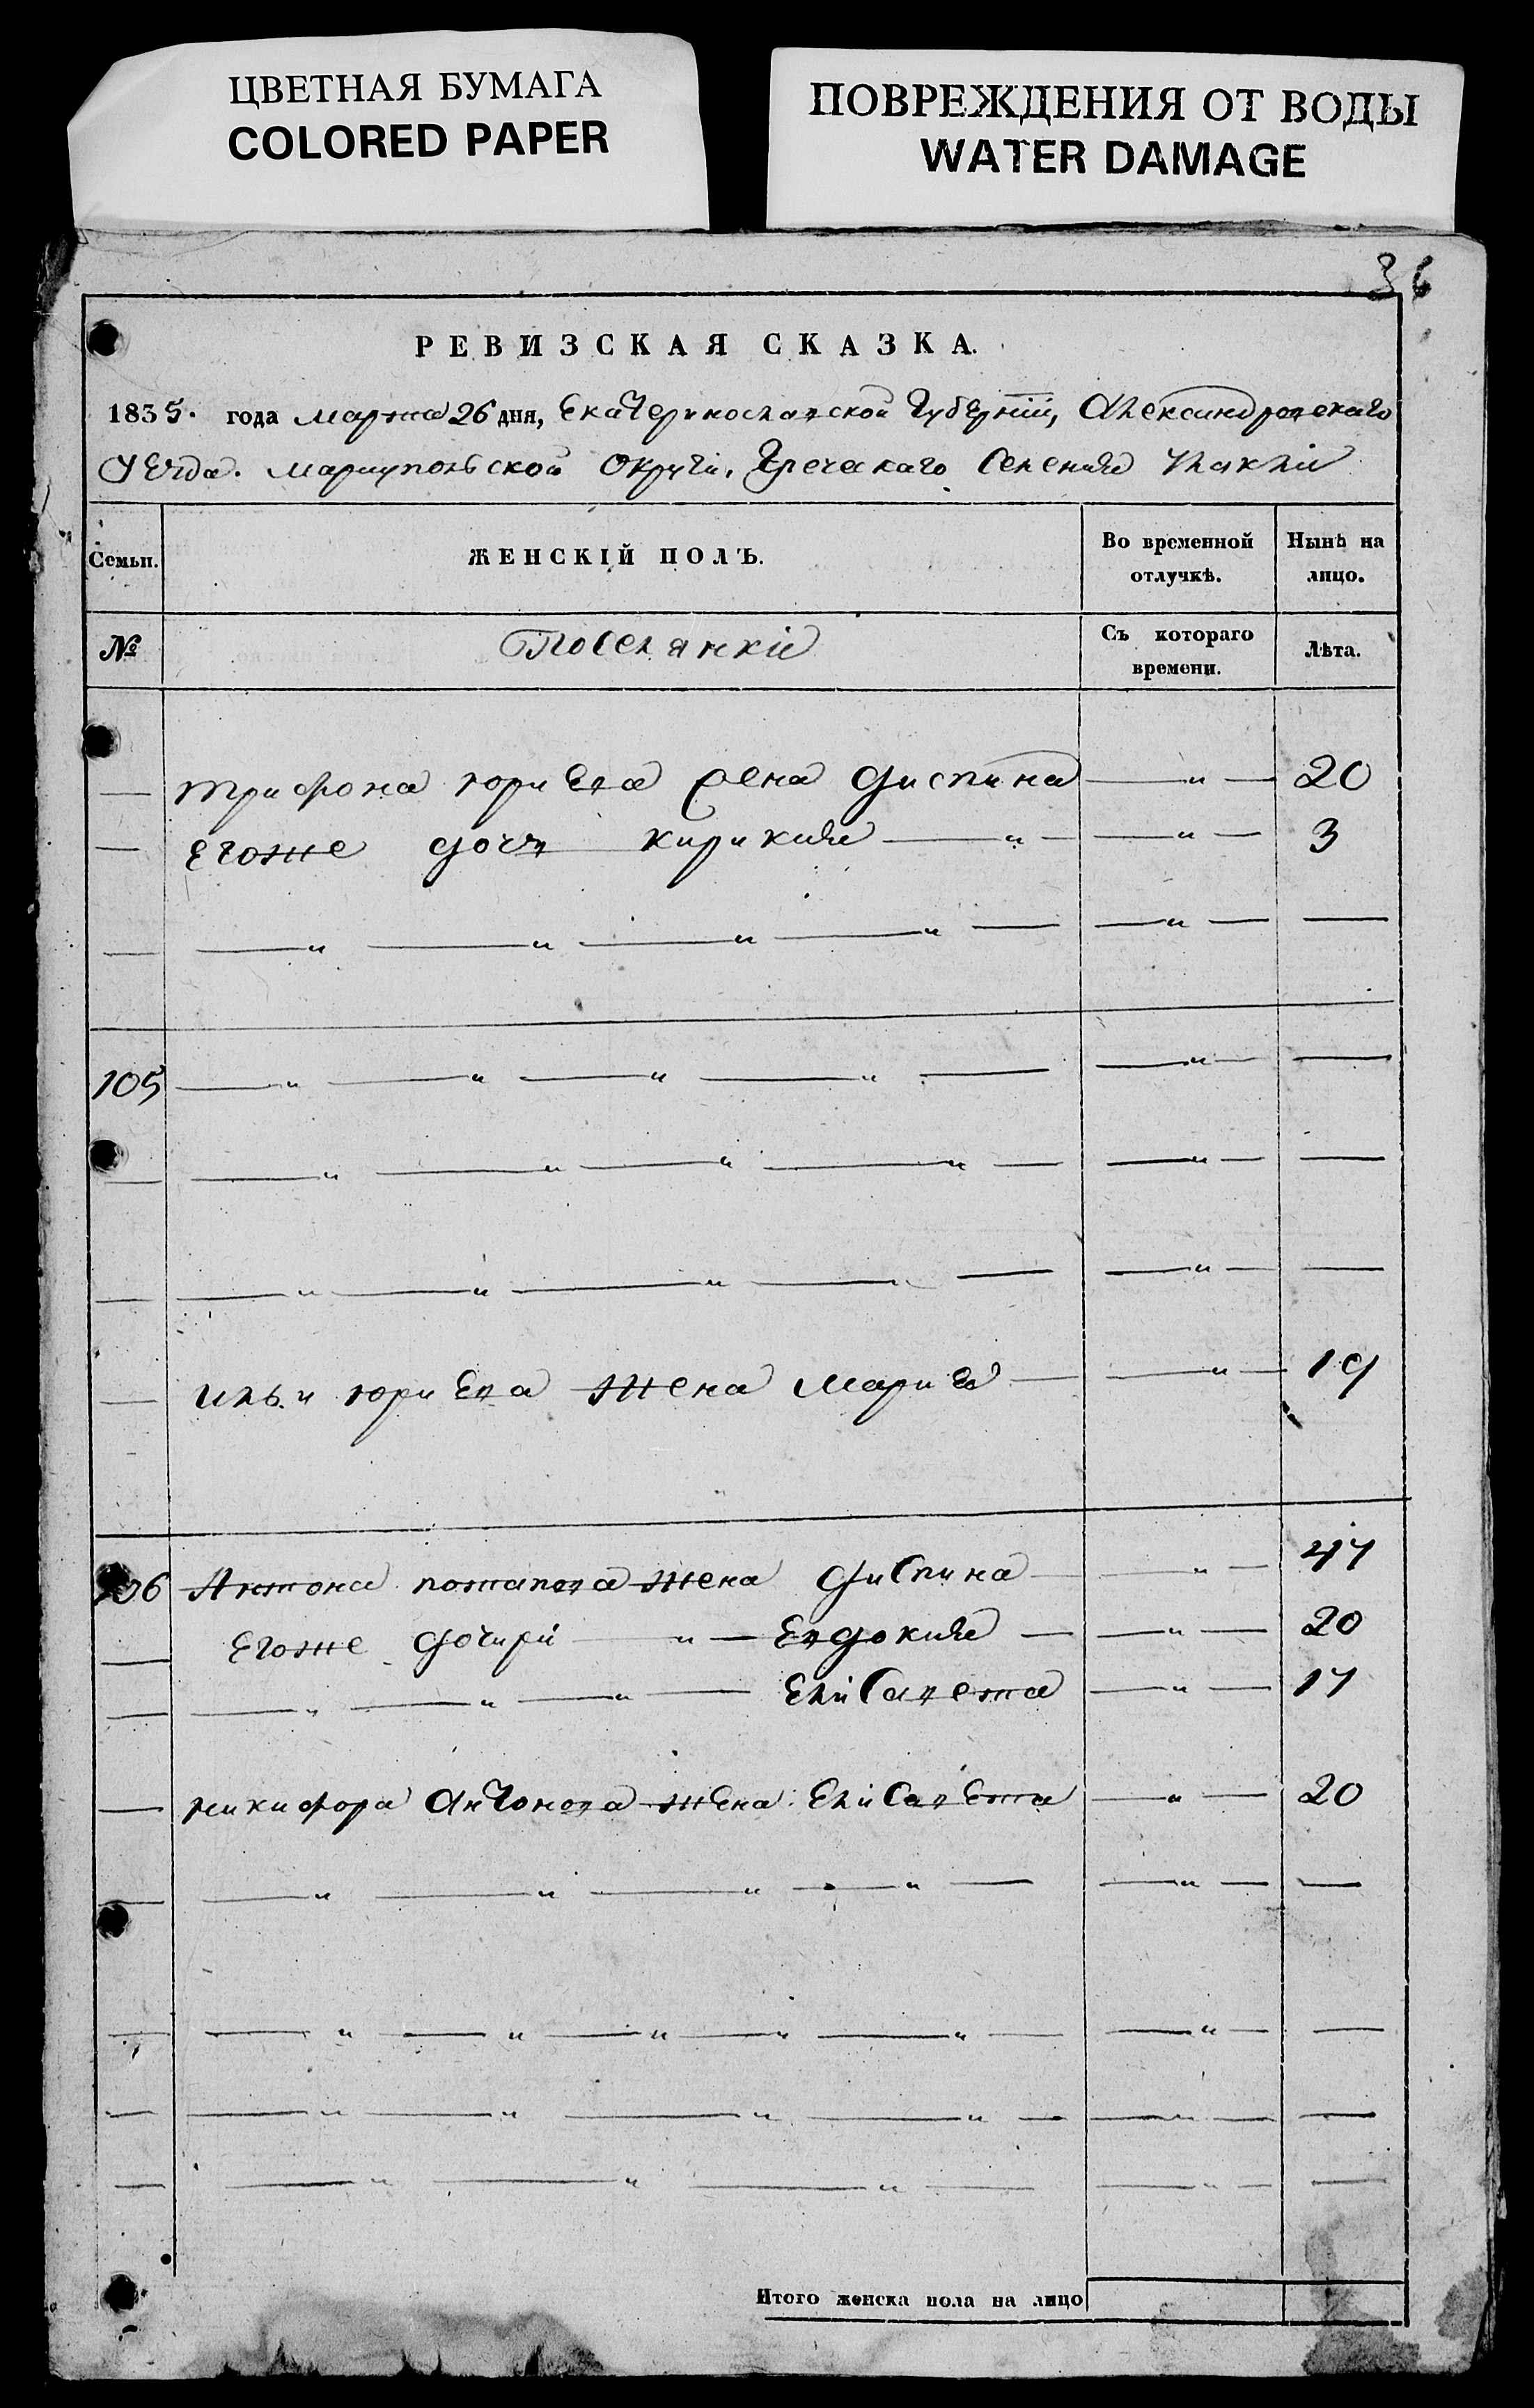 ЦВЕТНАЯ БУМАГА
COLORED PAPER
ПОВРЕЖДЕНИЯ ОТ ВОДЫ
WATER DAMAGE
36
РЕВИЗСКАЯ СКАЗКА.
1835. года марта 26 дня, Екатеринославской Губернїи, Александровскаго
Уезда. мариупольской Округи, Греческаго Селения
Семьи. ЖЕНСКІЙ ПОЛЪ. Во временной отлучкѣ. Нынѣ на лицо.
№ Поселянкіи Съ котораго времени. Лѣта.
трифона юриева жена диспина — " — 20
— егоже дочь кирикия — " — — " — 3
— — " — " — " — " — — " — —
105 — " — " — " — " — — " — —
— — " — " — " — " — — " — —
— — " — " — " — " — — " — —
— ильи юриева жена мария — — " — 19
106 Антона потапова жена диспина — — " — 47
— Егоже дочири — " — Евдокия — — " — 20
— — " — " — " — Елисавета — " — 17
— никифора Антонова жена Елисавета — " — 20
— — " — " — " — " — — " — —
— — " — " — " — " — " — — " — —
— — " — " — " — " — — " — —
— — " — " — " — — " — —
Итого женска пола на лицо